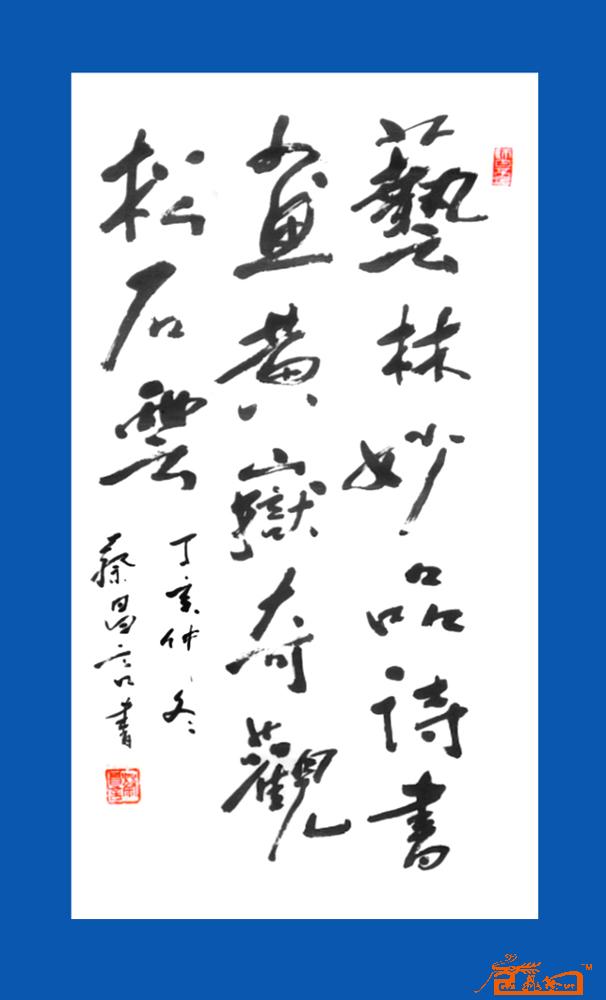 藝林妙品詩書
畫黃嶽奇觀
松石雲
丁亥仲冬
蔡昌言書